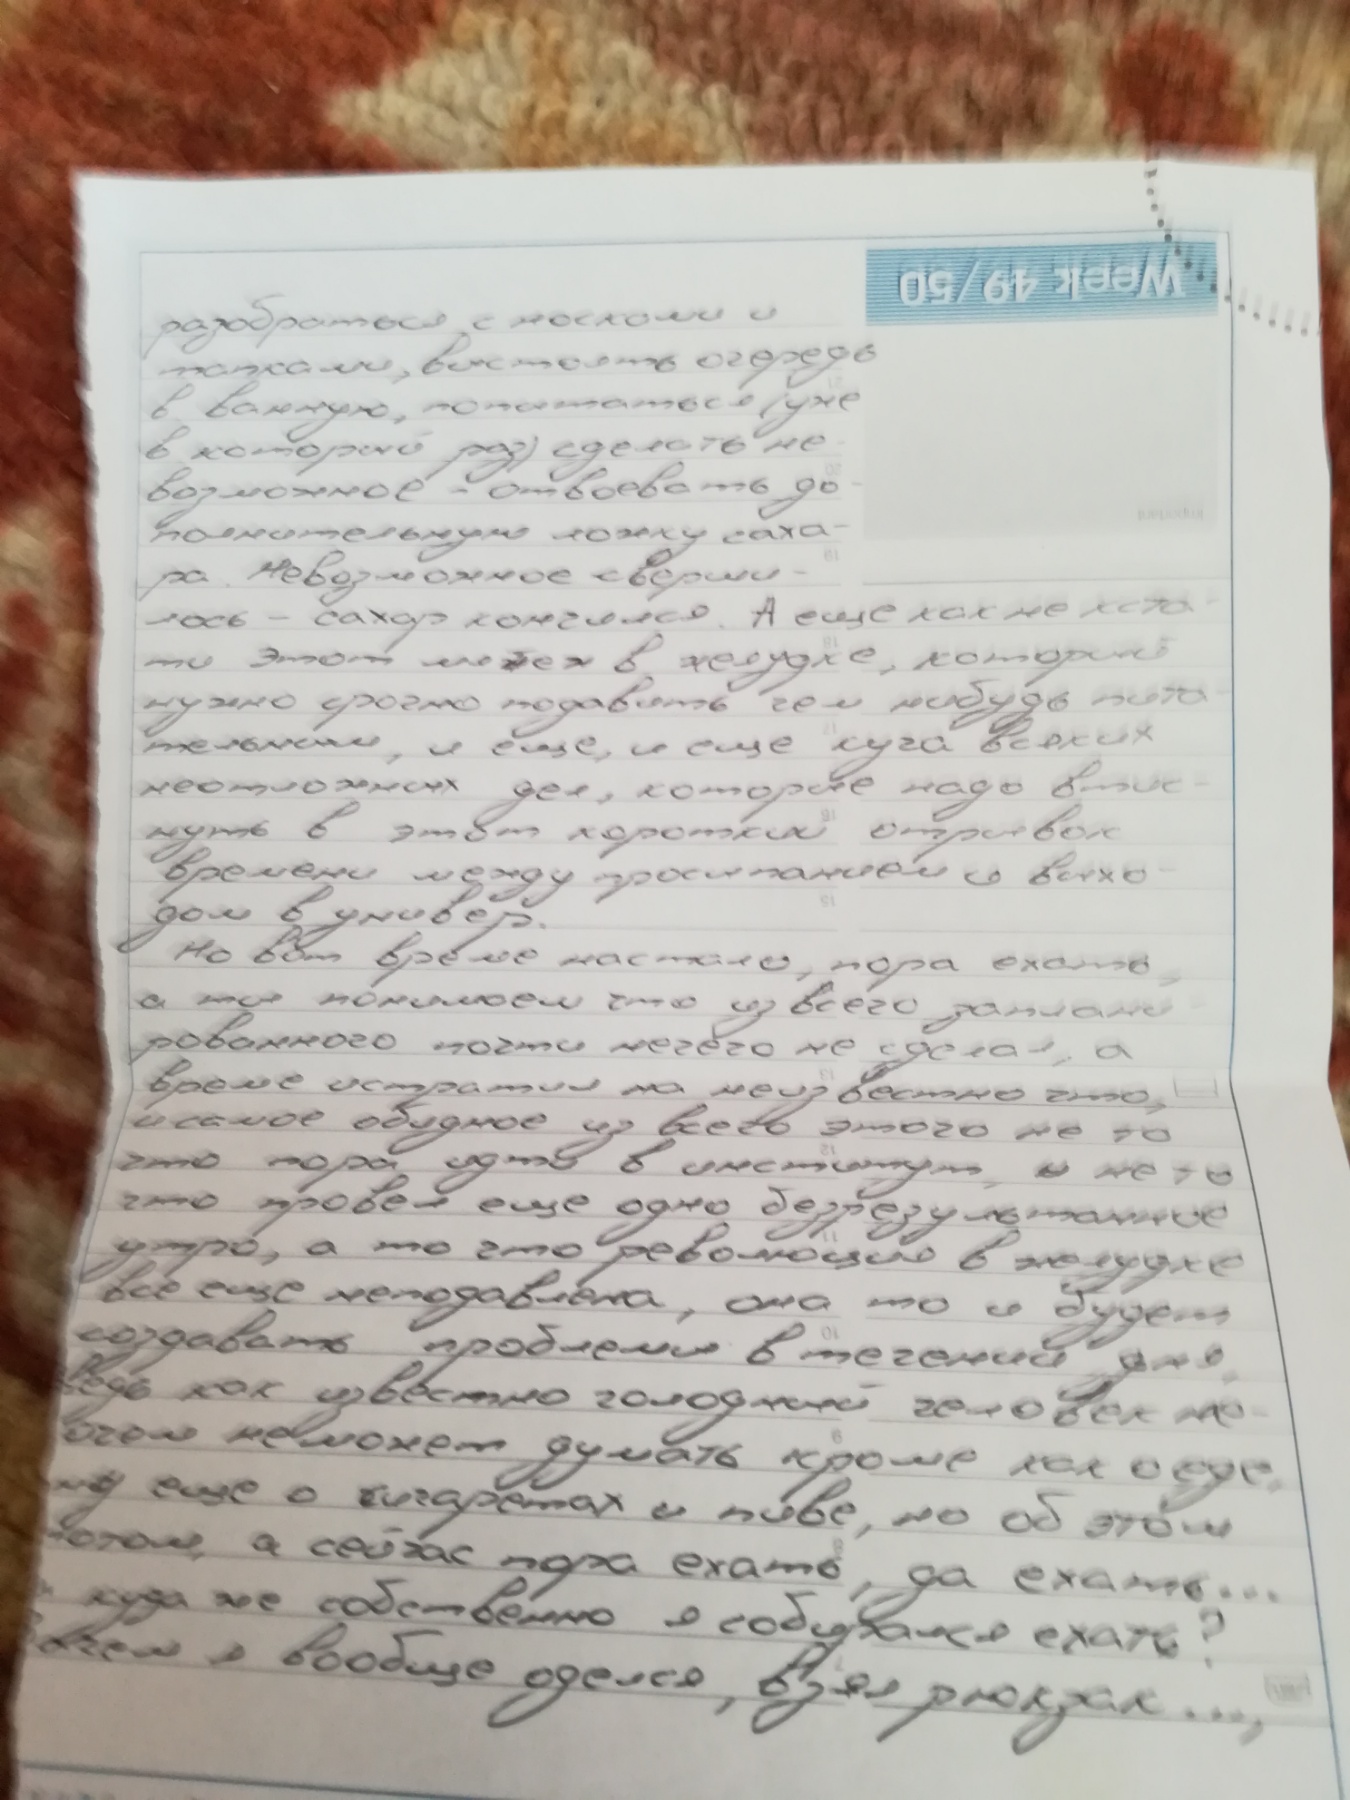 Week 49/50
разобраться с носками и
тапками, выстоять очередь
в ванную, попытаться (уже
в который раз) сделать не-
возможное - отвоевать до-
полнительную ложку саха-
ра. Невозможное сверши-
лось - сахар кончился. А еще как не кста-
ти этот мятеж в желудке, который
нужно срочно подавить чем нибудь пита-
тельным, и еще, и еще куча всяких
неотложных дел, которые надо втис-
нуть в этот короткий отрывок
времени между просыпанием и выхо-
дом в универ.
Но вот время настало, пора ехать,
а ты понимаем что из всего заплани-
рованного почти нечего не сделал, а
время истратил на неизвестно что,
и самое обидное из всего этого не то
что пора идти в институт, и не то
что провел еще одно безрезультатное
утро, а то что революция в желудке
все еще неподавлена, она то и будет
создавать проблемы в течении дня,
ведь как известно голодный человек не
очем неможет думать кроме как о еде,
ну еще о сигаретах и пиве, но об этом
потом, а сейчас пора ехать, да ехать...
куда же собственно я собирался ехать?
зачем я вообще оделся, взял рюкзак...,